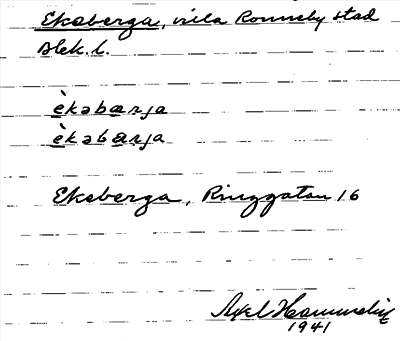 Ekeberga, villa Ronneby stad
Blek. l.
èkəbærja
èkəbarja
Ekeberga, Ringgatan 16
Axel
1941